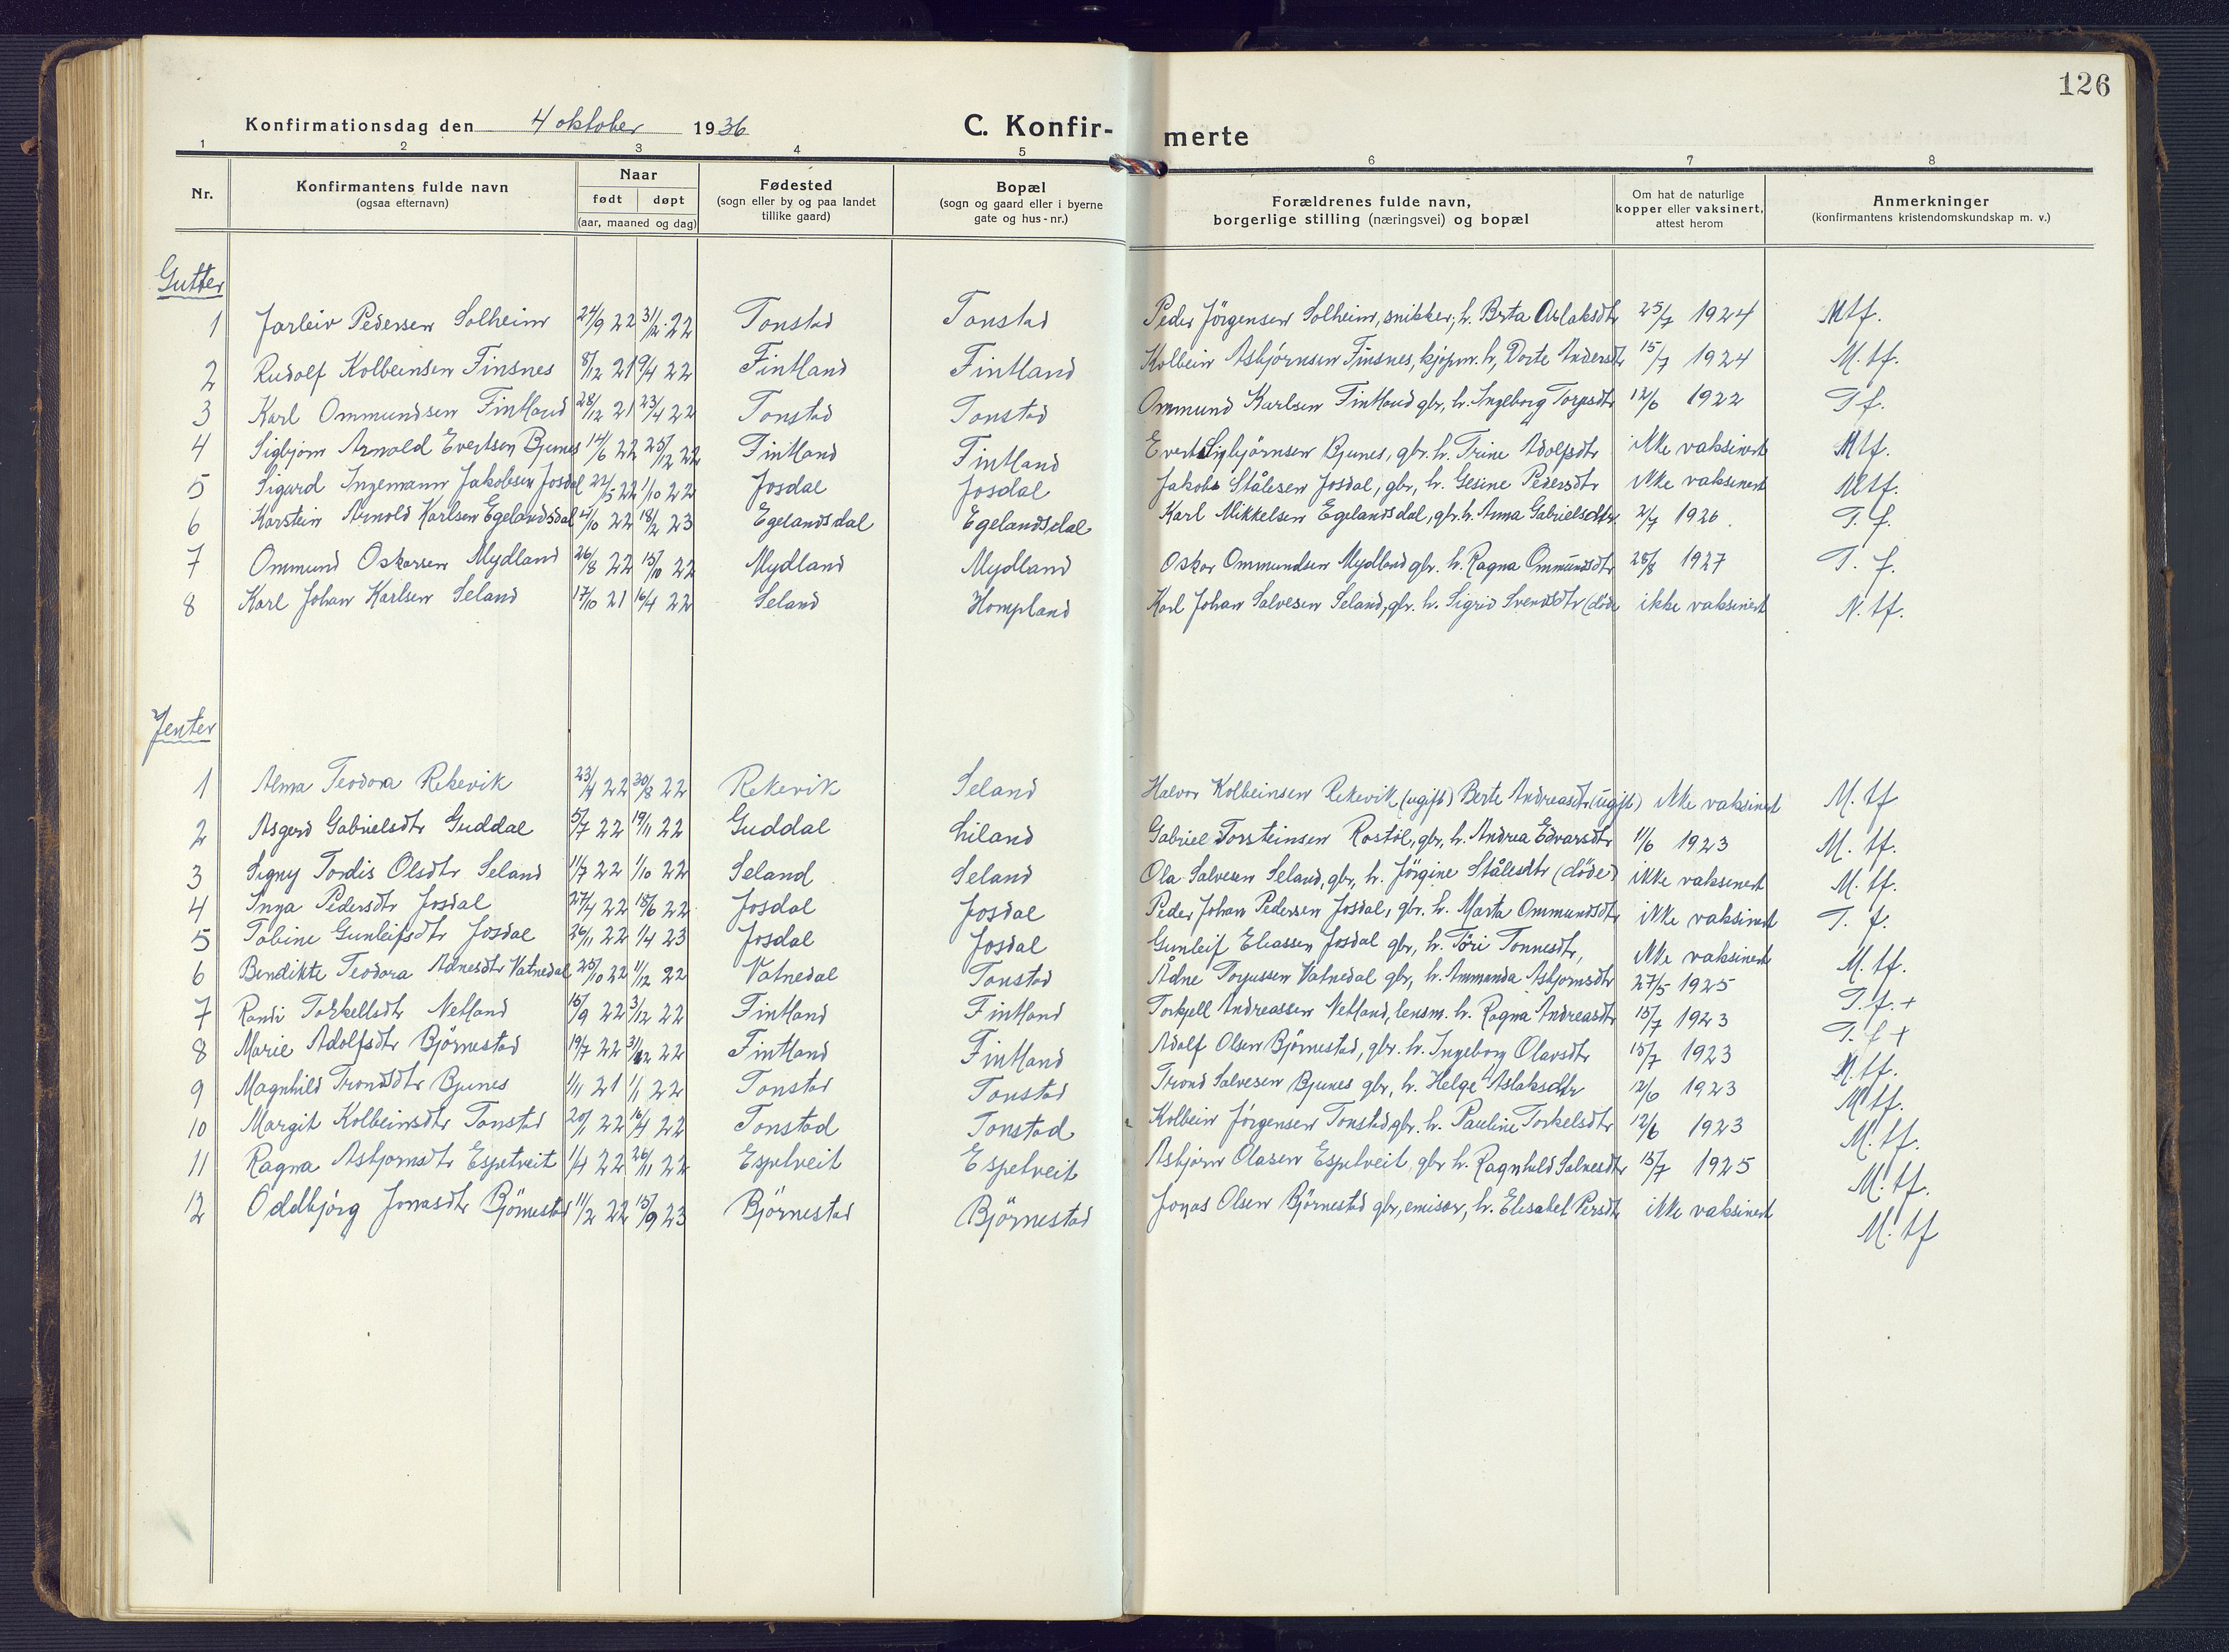 126
Konfirmationsdag den 4 oktober 1936 C. Konfir- merte
1 2 3 4 5 6 7 8
Nr. Konfirmantens fulde navn (ogsaa efternavn) Naar født døpt (aar, maaned og dag) Fødested (sogn eller by og paa landet tillike gaard) Bopæl (sogn og gaard eller i byerne gate og hus-nr.) Forældrenes fulde navn, borgerlige stilling (næringsvei) og bopæl Om hat de naturlige kopper eller vaksinert, attest herom Anmerkninger (konfirmantens kristendomskundskap m. v.)
Gutter
1 Jarleiv Pedersen Solheim 24/9 22 31/12 22 Tonstad Tonstad Peder Jörgensen Solheim, snikker, h. Berta Aslaksdtr 25/7 1924 Mtf.
2 Rudolf Kolbeinsen Finsnes 8/12 21 9/4 22 Fintland Fintland Kolbein Asbjörnsen Finsnes, kjöpm. h, Dorte Andersdtr 15/7 1924 M. tf.
3 Karl Ommundsen Fintland 28/12 21 23/4 22 Tonstad Tonstad Ommund Karlsen Fintland gbr, h. Ingeborg Torjusdtr 12/6 1922 T f.
4 Sigbjörn Arnold Evertsen Bjunes 14/6 22 25/12 22 Fintland Fintland Evert Sigbjörnsen Bjunes, gbr. h. Trine Adolfsdtr ikke vaksinert Mtf.
5 Sigurd Ingemann Jakobsen Josdal 22/5 22 1/10 22 Josdal Josdal Jakob Stålesen Josdal, gbr, h. Gesine Pedersdtr ikke vaksinert Mtf.
6 Karstein Arnold Karlsen Egelandsdal 22 18/2 23 Egelandsdal Egelandsdal Karl Mikkelsen Egelandsdal, gbr. h. Anna Gabrielsdtr. 2/7 1926. T. f.
7 Ommund Oskarsen Mydland 26/8 22 15/10 22 Mydland Mydland Oskar Ommundsen Mydland gbr. h. Ragna Ommundsdtr 28/8 1927 T. f.
8 Karl Johan Karlsen Seland 17/10 21 16/4 22 Seland Hompland Karl Johan Salvesen Seland, gbr. h. Sigrid Svendsdtr (döde ikke vaksinert N. tf.
Jenter
1 Alma Teodora Rekevik 23/4 22 30/8 22 Rekevik Seland Halvor Kolbeinsen Rekevik (ugift) Berte Andreasdtr (ugift) ikke vaksinert M. tf
2 Asgerd Gabrielsdtr Guddal 5/7 22 19/11 22 Guddal Liland Gabriel Torsteinsen Rostöl, gbr, h. Andrea Edvarsdtr 1/6 1923 M. tf.
3 Signy Tordis Olsdtr Seland 11/7 22 1/10 22 Seland Seland Ola Salvesen Seland, gbr, h. Jörgine Stålesdtr (döde) ikke vaksinert M. tf.
4 Inga Pedersdtr Josdal 27/4 22 18/6 22 Josdal Josdal Peder Johan Pedersen Josdal, gbr. h. Marta Ommundsdtr ikke vaksinert T. f.
5 Tobine Gunleifsdtr Josdal 26/11 22 1/4 23 Josdal Josdal Gunleif Eliassen Josdal gbr, h. Töri Tonnesdtr, ikke vaksinert M. tf.
6 Bendikte Teodora Adnesdtr Vatnedal 25/10 22 11/12 22 Vatnedal Tonstad Ådne Torjussen Vatnedal gbr, h. Ammanda Asbjornsdtr 27/5 1925 T. f. +
7 Randi Torkellsdtr Netland 15/9 22 3/12 22 Fintland Fintland Torkjell Andreassen Netland, lensm. h. Ragna Andreasdtr 15/7 1923 T. f +
8 Marie Adolfsdtr Björnestad 19/7 22 31/12 22 Fintland Fintland Adolf Olsen Björnestad, gbr. h. Ingeborg Olavsdtr 15/7 1923 M. tf.
9 Magnhild Trondsdtr Bjunes 1/11 21 1/1 22 Tonstad Tonstad Trond Salvesen Bjunes gbr, h. Helge Aslaksdtr 12/6 1923 M tf.
10 Margit Kolbeinsdtr Tonstad 20/1 22 16/4 22 Tonstad Tonstad Kolbein Jörgensen Tonstad gbr. h. Pauline Torkelsdtr 12/6 1923 M. tf.
11 Ragna Asbjornsdtr Espetveit 1/4 22 26/11 22 Espetveit Espetveit Asbjörn Olasen Espetveit, gbr h. Ragnhild Salvesdtr 15/7 1925 M. tf.
12 Oddbjörg Jonasdtr Björnestad 11/2 22 15/9 23 Björnestad Björnestad Jonas Olsen Björnestad gbr, emisær, h. Elisabet Persdtr ikke vaksinert M. tf